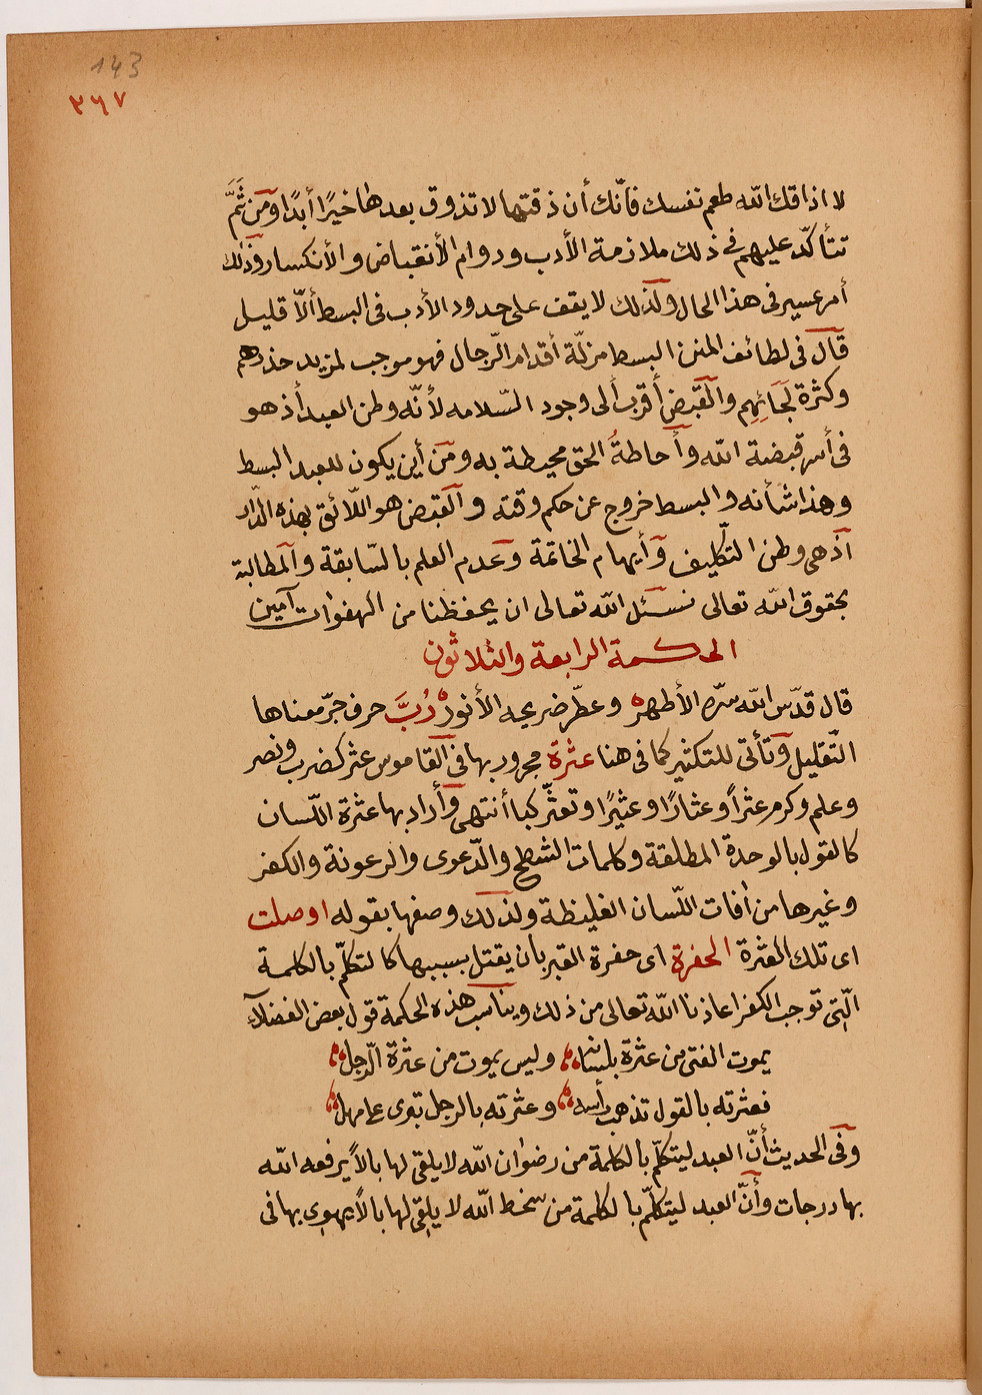 143
٢٦٧
لا اذاقك الله طعم نفسك فأنّك أن ذقتها لا تذوق بعدها خيرًا أبدًا ومن ثَمَّ
تتأكّد عليهم فى ذلك ملازمة الأدب ودوام الأنقباض والأنكسار وذلك
أمر عسير فى هذا الحال ولذلك لا يقف على حدود الأدب فى البسط ألّا قليل
قال فى لطائف المنن البسط مزلّة أقدام الرّجال فهو موجب لمزيد حذرهم
وكثرة لَجَائِهِم والقبض أقرب ألى وجود السّلامه لأنّه وطن العبد أذ هو
فى أسر قبضة الله وأحاطةُ الحق محيطة به ومن أين يكون للعبد البسط
وهذا شأنه والبسط خروج عن حكم وقته والقبض هو اللّائق بهذه الدّار
أذ هى وطن التكليف وأيهام الخاتمة وعدم العلم بالسّابقة والمطالبة
بحقوق الله تعالى نسئل الله تعالى ان يحفظنا من الهفوات آمين
الحكمة الرابعة والثلاثون
قال قدّس الله سرّه الأطهر وعطّر ضريحه الأنور رُبَّ حرف جرّ معناها
التّقليل وتأتى للتكثير كما فى هنا عثرة مجرور بها فى القاموس عثر كضرب ونصر
وعلم وكرم عثرًا وعثارًا وعثيرًا وتعثّر كبا أنتهى وأراد بها عثرة اللّسان
كالقول بالوحدة المطلقة وكلمات الشطح والدّعوى والرعونة والكفر
وغيرها من أفات اللّسان الغليظة ولذلك وصفها بقوله اوصلت
اى تلك العثرة الحفرة اى حفرة القبر بان يقتل بسببها كالتكلّم بالكلمة
الّتى توجب الكفر اعاذنا الله تعالى من ذلك ويناسب هذه الحكمة قول بعض الفضلآء
يموت الفتى من عثرة بلسانه وليس يموت من عثرة الرّجل
فعثرته بالقول تذهب رأسه وعثرته بالرجل تبرى على مهل
وفى الحديث أنّ العبد ليتكلّم بالكلمة من رضوان الله لا يلقى لها بالاً يرفعه الله
بها درجات وأنّ العبد ليتكلّم بالكلمة من سخط الله لا يلقى لها بالاً يهوى بها فى